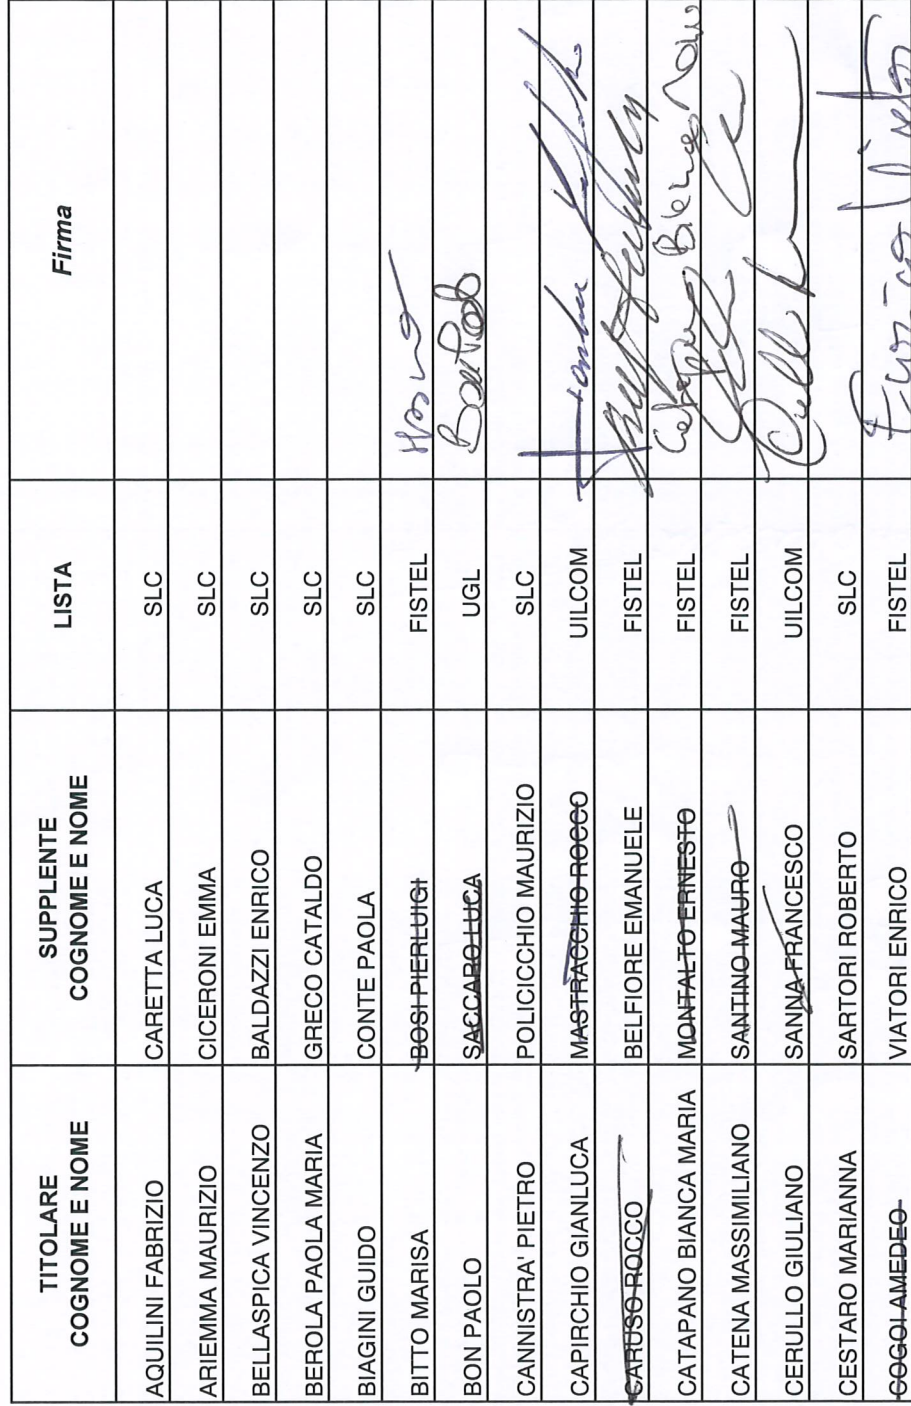 TITOLARE COGNOME E NOME SUPPLENTE COGNOME E NOME LISTA Firma
AQUILINI FABRIZIO CARETTA LUCA SLC
ARIEMMA MAURIZIO CICERONI EMMA SLC
BELLASPICA VINCENZO BALDAZZI ENRICO SLC
BEROLA PAOLA MARIA GRECO CATALDO SLC
BIAGINI GUIDO CONTE PAOLA SLC
BITTO MARISA BOSI PIERLUIGI FISTEL
BON PAOLO SACCARO LUCA UGL Bon Paolo
CANNISTRA' PIETRO POLICICCHIO MAURIZIO SLC
CAPIRCHIO GIANLUCA MASTRACCHIO ROCCO UILCOM
CARUSO ROCCO BELFIORE EMANUELE FISTEL
CATAPANO BIANCA MARIA MONTALTO ERNESTO FISTEL
CATENA MASSIMILIANO SANTINO MAURO FISTEL
CERULLO GIULIANO SANNA FRANCESCO UILCOM
CESTARO MARIANNA SARTORI ROBERTO SLC
COGOI AMEDEO VIATORI ENRICO FISTEL